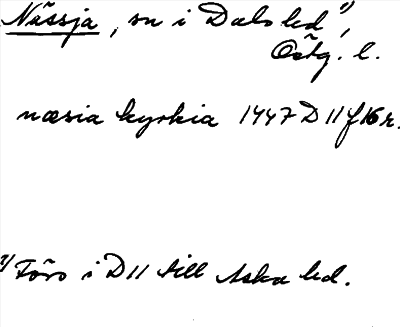 Nässja, sn i Dals hd 1),
Östg. l.
næsia kyrkia 1447 D 11 f 16 r.
1) Förs i D 11 till Aska hd.